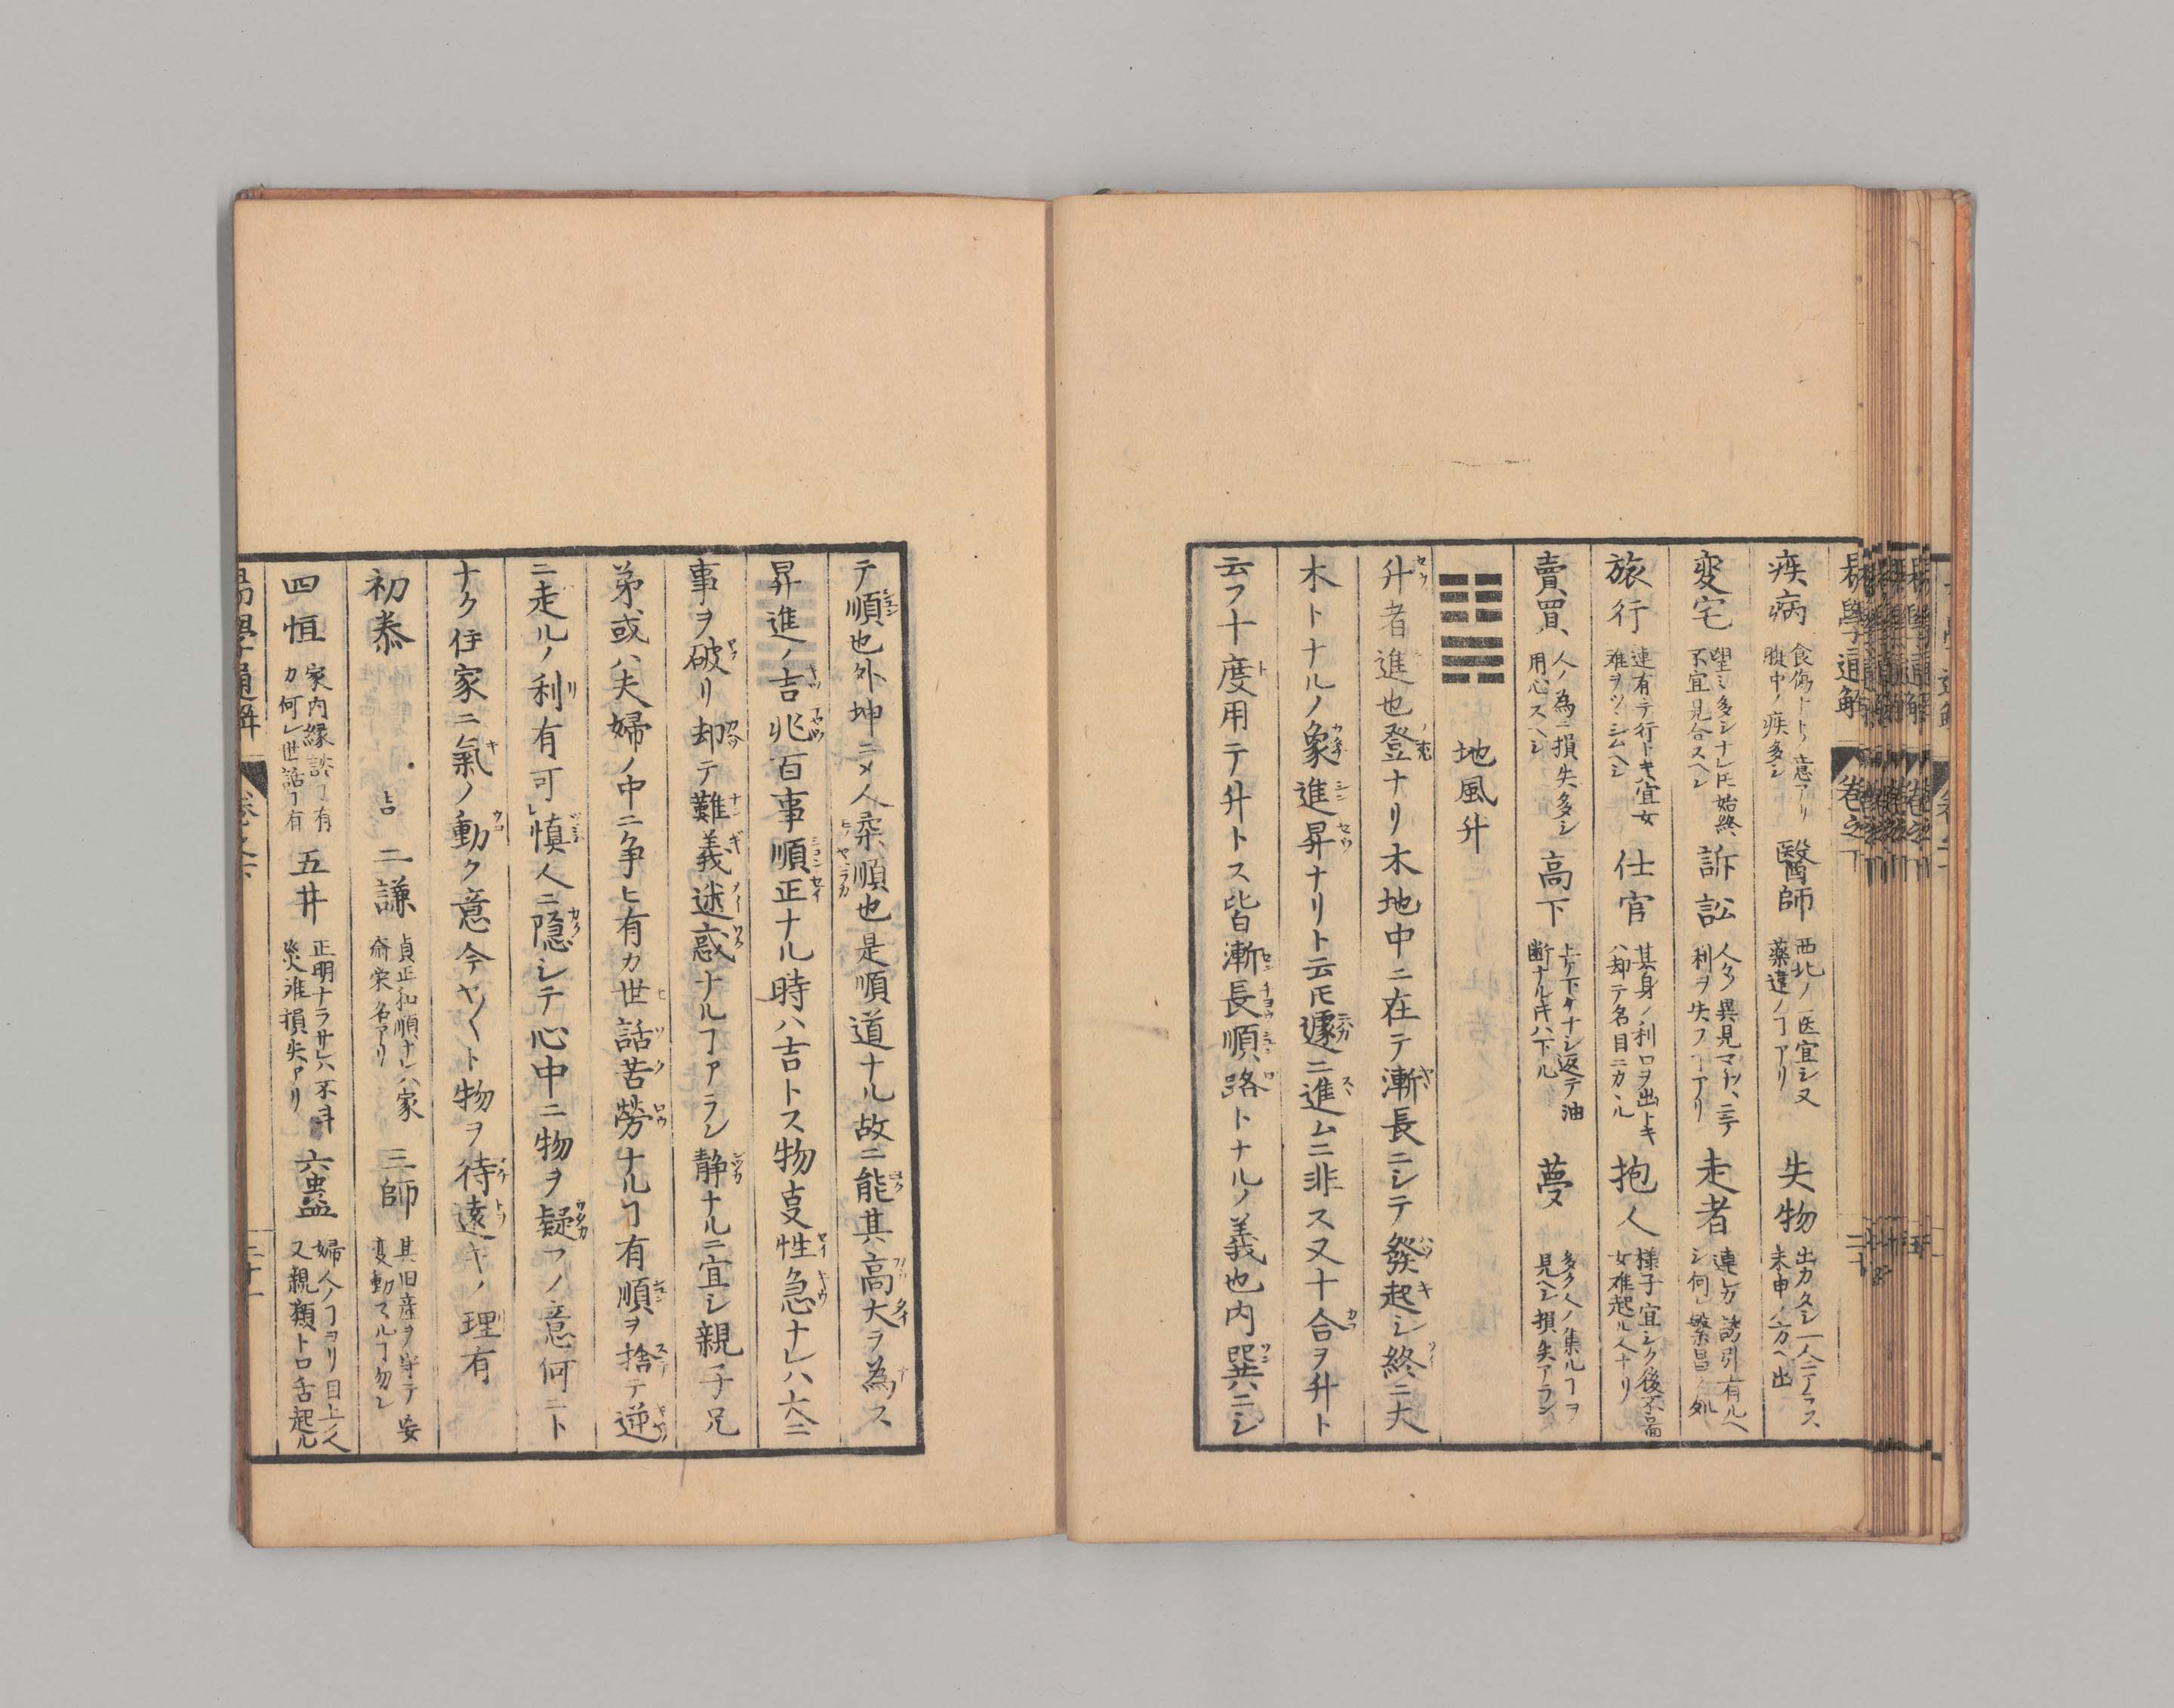 易學通解 卷之下
疾病 食傷ノ意アリ腹中ノ疾多シ 醫師 西北ノ医宜シ又藥違ノヿアリ 失物 出カタシ一人ニアラス未申ノ方ヘ出
変宅 望ミ多シナレ𪜈始終不宜見合スヘシ 訴訟 人多ク異見マチ〱ニテ利ヲ失フヿアリ 走者 連レ方誘引有ルヘシ何レ繁昌ノ処
旅行 連有テ行トキ宜女難ヲツヽシムヘシ 仕官 其身ノ利口ヲ出トキハ却テ名目ニカヽル 抱人 様子宜シク後不面女難起ル人ナリ
賣買 人ノ為ニ損失多シ用心スヘシ 高下 上ケ下ケナシ返テ油断ナルキハ下ル 夢 多ク人ノ集ルヿヲ見ヘシ損失アラン
地風升
升者進也登ナリ木地中ニ在テ漸長ニシテ發起シ終ニ大
木トナルノ象進昇ナリト云𪜈遽ニ進ムニ非ス又十合ヲ升ト
云フ十度用テ升トス皆漸長順路トナルノ義也内巽ニシ
テ順也外坤ニメ人柔順也是順道ナル故ニ能其高大ヲ為ス
昇進ノ吉兆百事順正ナル時ハ吉トス物叓性急ナレハ大ニ
事ヲ破リ却テ難義迷惑ナルヿアラン静ナルニ宜シ親子兄
弟或ハ夫婦ノ中ニ争ヒ有カ世話苦勞ナルヿ有順ヲ捨テ逆
ニ走ルノ利有可慎人ニ隱シテ心中ニ物ヲ疑フノ意何ニト
ナク住家ニ氣ノ動ク意今ヤ〱ト物ヲ待遠キノ理有
初泰 吉 二謙 貞正和順ナレハ家齊栄名アリ 三師 其旧産ヲ守テ安変動スルヿ勿レ
四恒 家内縁談ヿ有カ何レ世話ヿ有 五井 正明ナラサレハ不幸災難損失アリ 六蠱 婦人ノヿヨリ目上ノ人又親類ト口舌起ル
易學通解 卷之下 二十一